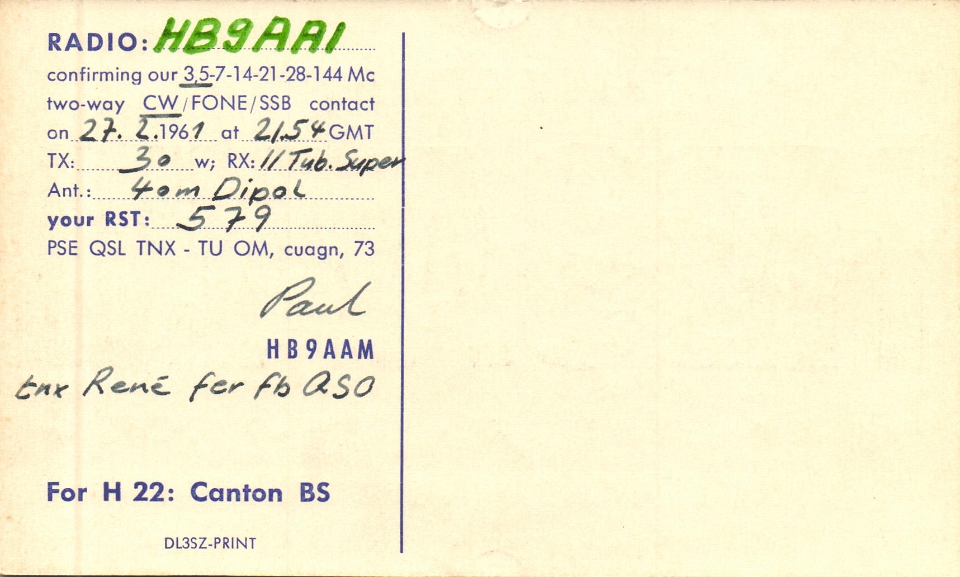 RADIO: HB9AAI
confirming our 3,5-7-14-21-28-144 Mc
two-way CW/FONE/SSB contact
on 27. I. 1961 at 21.54 GMT
TX: 30 w; RX: 11 Tub. Super
Ant.: 40m Dipol
your RST: 579
PSE QSL TNX - TU OM, cuagn, 73
Paul
HB9AAM
tnx René fer fb QSO
For H 22: Canton BS
DL3SZ-PRINT